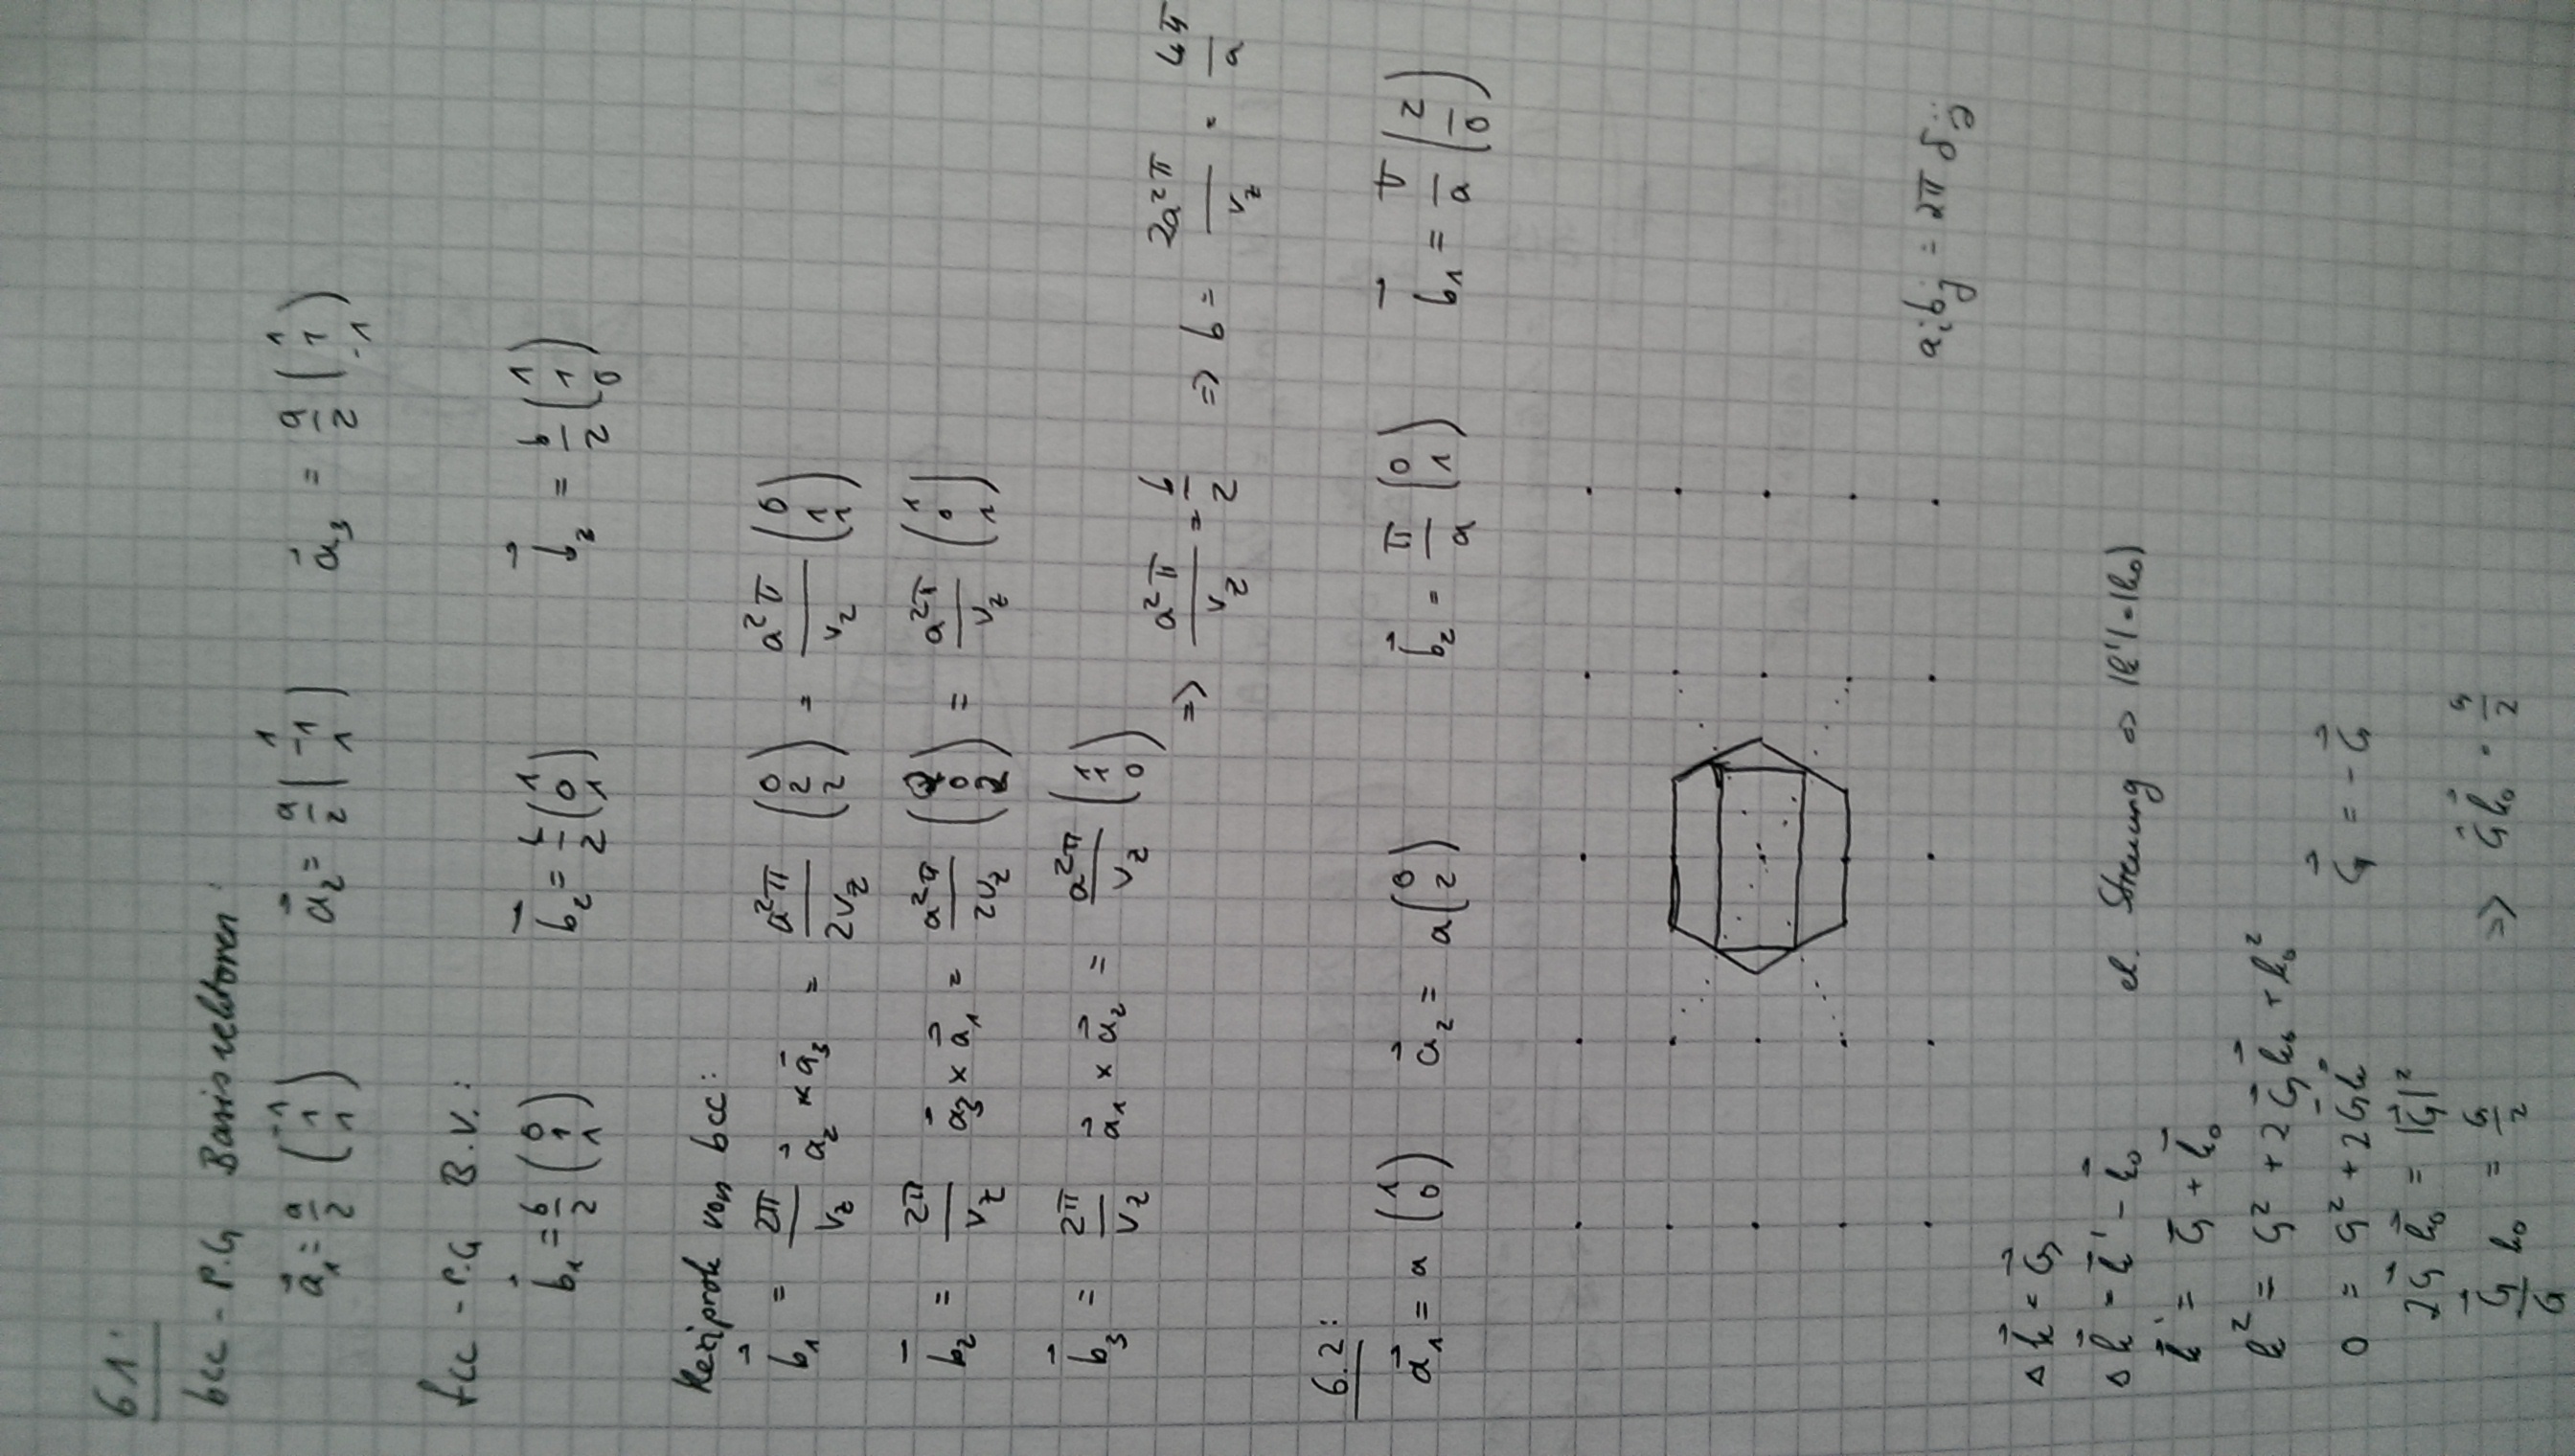 6.1:
bcc - P.G Basisvektoren:
a⃗₁ = a/2 (-1 1 1) a⃗₂ = a/2 (1 -1 1) a⃗₃ = a/2 (1 1 -1)
fcc - P.G B.V.:
b⃗₁ = b/2 (0 1 1) b⃗₂ = b/2 (1 0 1) b⃗₃ = b/2 (1 1 0)
Reziprok von bcc:
b⃗₁ = 2π/V_z a⃗₂ × a⃗₃ = a²π/2V_z (0 2 2) = a²π/V_z (0 1 1)
b⃗₂ = 2π/V_z a⃗₃ × a⃗₁ = a²π/2V_z (2 0 2) = a²π/V_z (1 0 1)
b⃗₃ = 2π/V_z a⃗₁ × a⃗₂ = a²π/V_z (1 1 0)
⇒ a²π/V_z = b/2 ⇒ b = 2a²π/V_z = 4π/a
6.2:
a⃗₁ = a (1 0) a⃗₂ = a (0 2) b⃗₂ = π/a (0 1) b⃗₁ = π/a (2 0)
aᵢbⱼ = 2π δᵢⱼ
Δk⃗ = G⃗
Δk⃗ = k⃗' - k⃗₀ el. Streuung ⇔ |k'| = |k₀|
k⃗' = G⃗ + k⃗₀
k² = G² + 2G⃗k⃗₀ + k₀²
0 = G² + 2G⃗k⃗ G⃗ = -G⃗
2G⃗k⃗₀ = |G⃗|²
G⃗/G k₀ = G/2 ⇒ G⃗k⃗₀ = G/2